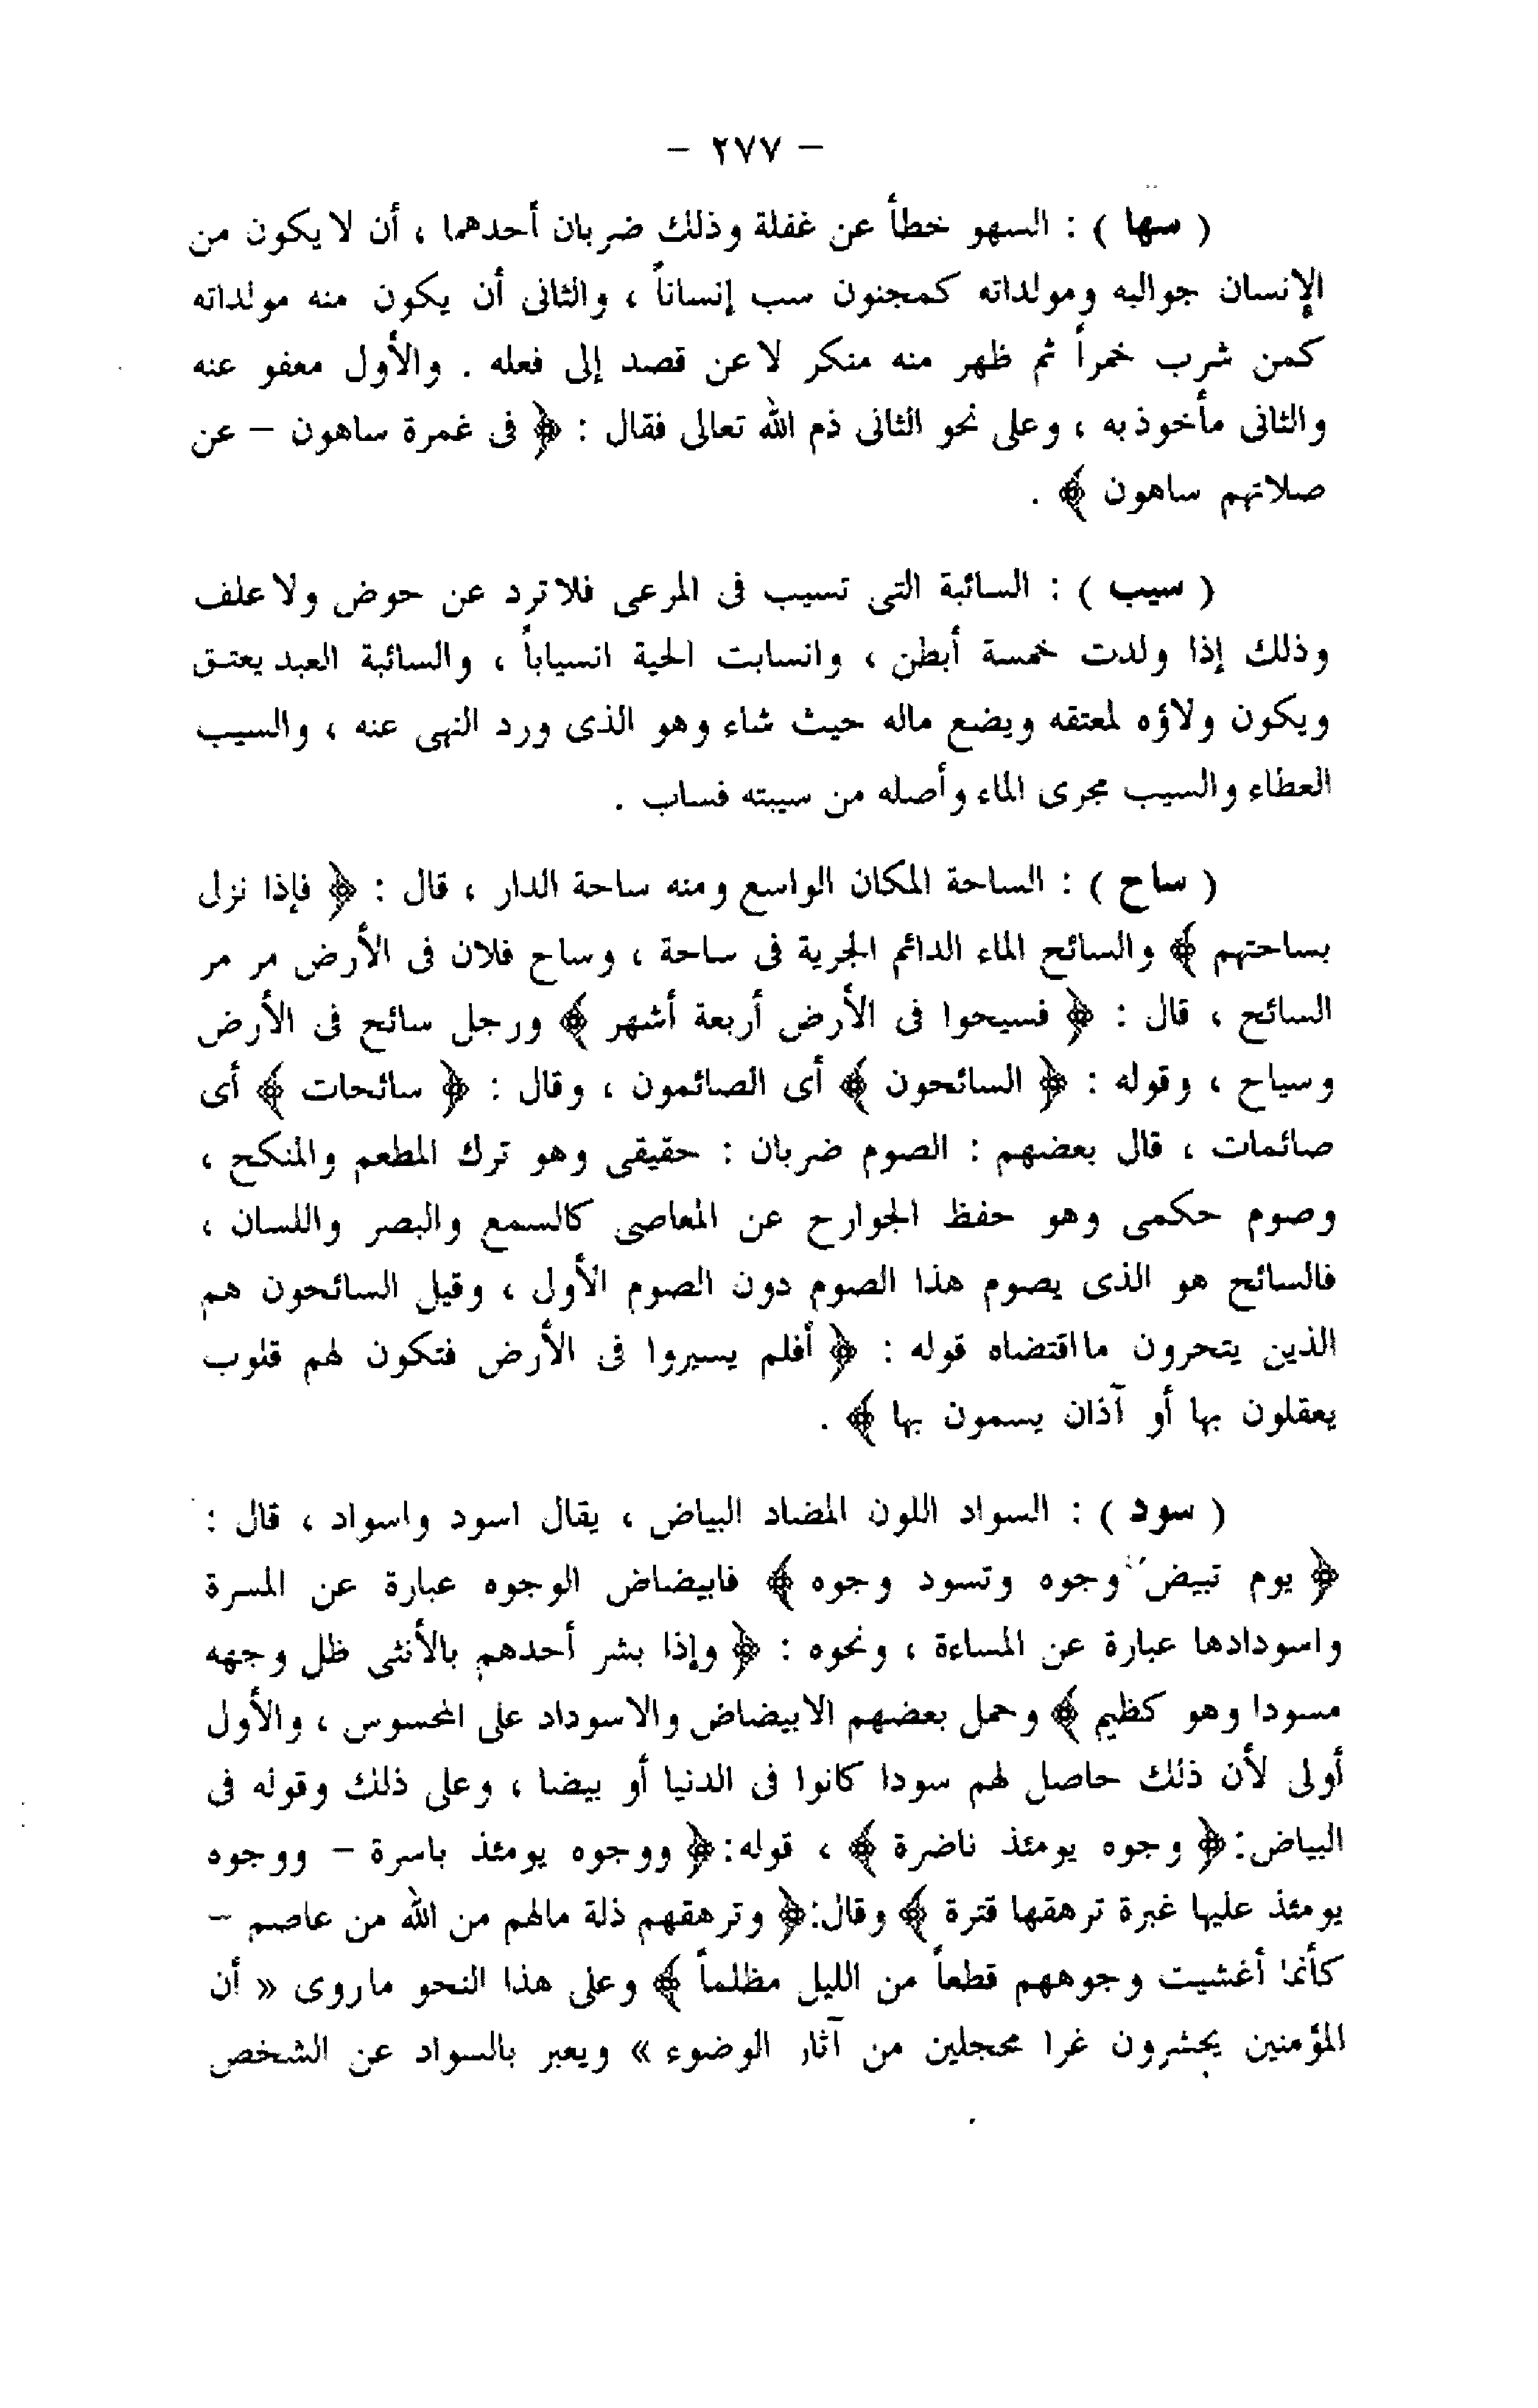 - ٢٧٧ -
( سها ) : السهو خطأ عن غفلة وذلك ضربان أحدهما ، أن لا يكون من
الإنسان جوالبه ومولداته كمجنون سب إنساناً ، والثانى أن يكون منه مولداته
كمن شرب خمراً ثم ظهر منه منكر لا عن قصد إلى فعله . والأول معفو عنه
والثانى مأخوذ به ، وعلى نحو الثانى ذم الله تعالى فقال : ﴿ فى غمرة ساهون - عن
صلاتهم ساهون ﴾ .
( سيب ) : السائبة التى تسيب فى المرعى فلا ترد عن حوض ولا علف
وذلك إذا ولدت خمسة أبطن ، وانسابت الحية انسياباً ، والسائبة العبد يعتق
ويكون ولاؤه لمعتقه ويضع ماله حيث شاء وهو الذى ورد النهى عنه ، والسيب
العطاء والسيب مجرى الماء وأصله من سيبته فساب .
( ساح ) : الساحة المكان الواسع ومنه ساحة الدار ، قال : ﴿ فإذا نزل
بساحتهم ﴾ والسائح الماء الدائم الجرية فى ساحة ، وساح فلان فى الأرض مر مر
السائح ، قال : ﴿ فسيحوا فى الأرض أربعة أشهر ﴾ ورجل سائح فى الأرض
وسياح ، وقوله : ﴿ السائحون ﴾ أى الصائمون ، وقال : ﴿ سائحات ﴾ أى
صائمات ، قال بعضهم : الصوم ضربان : حقيقى وهو ترك المطعم والمنكح ،
وصوم حكمى وهو حفظ الجوارح عن المعاصى كالسمع والبصر واللسان ،
فالسائح هو الذى يصوم هذا الصوم دون الصوم الأول ، وقيل السائحون هم
الذين يتحرون ما اقتضاه قوله : ﴿ أفلم يسيروا فى الأرض فتكون لهم قلوب
يعقلون بها أو آذان يسمون بها ﴾ .
( سود ) : السواد اللون المضاد البياض ، يقال اسود واسواد ، قال :
﴿ يوم تبيض وجوه وتسود وجوه ﴾ فابيضاض الوجوه عبارة عن المسرة
واسودادها عبارة عن المساءة ، ونحوه : ﴿ وإذا بشر أحدهم بالأنثى ظل وجهه
مسودا وهو كظيم ﴾ وحمل بعضهم الابيضاض والاسوداد على المحسوس ، والأول
أولى لأن ذلك حاصل لهم سودا كانوا فى الدنيا أو بيضا ، وعلى ذلك وقوله فى
البياض : ﴿ وجوه يومئذ ناضرة ﴾ ، قوله : ﴿ ووجوه يومئذ باسرة - ووجوه
يومئذ عليها غبرة ترهقها قترة ﴾ وقال : ﴿ وترهقهم ذلة مالهم من الله من عاصم -
كأنما أغشيت وجوههم قطعاً من الليل مظلماً ﴾ وعلى هذا النحو ماروى « أن
المؤمنين يحشرون غرا محجلين من آثار الوضوء » ويعبر بالسواد عن الشخص